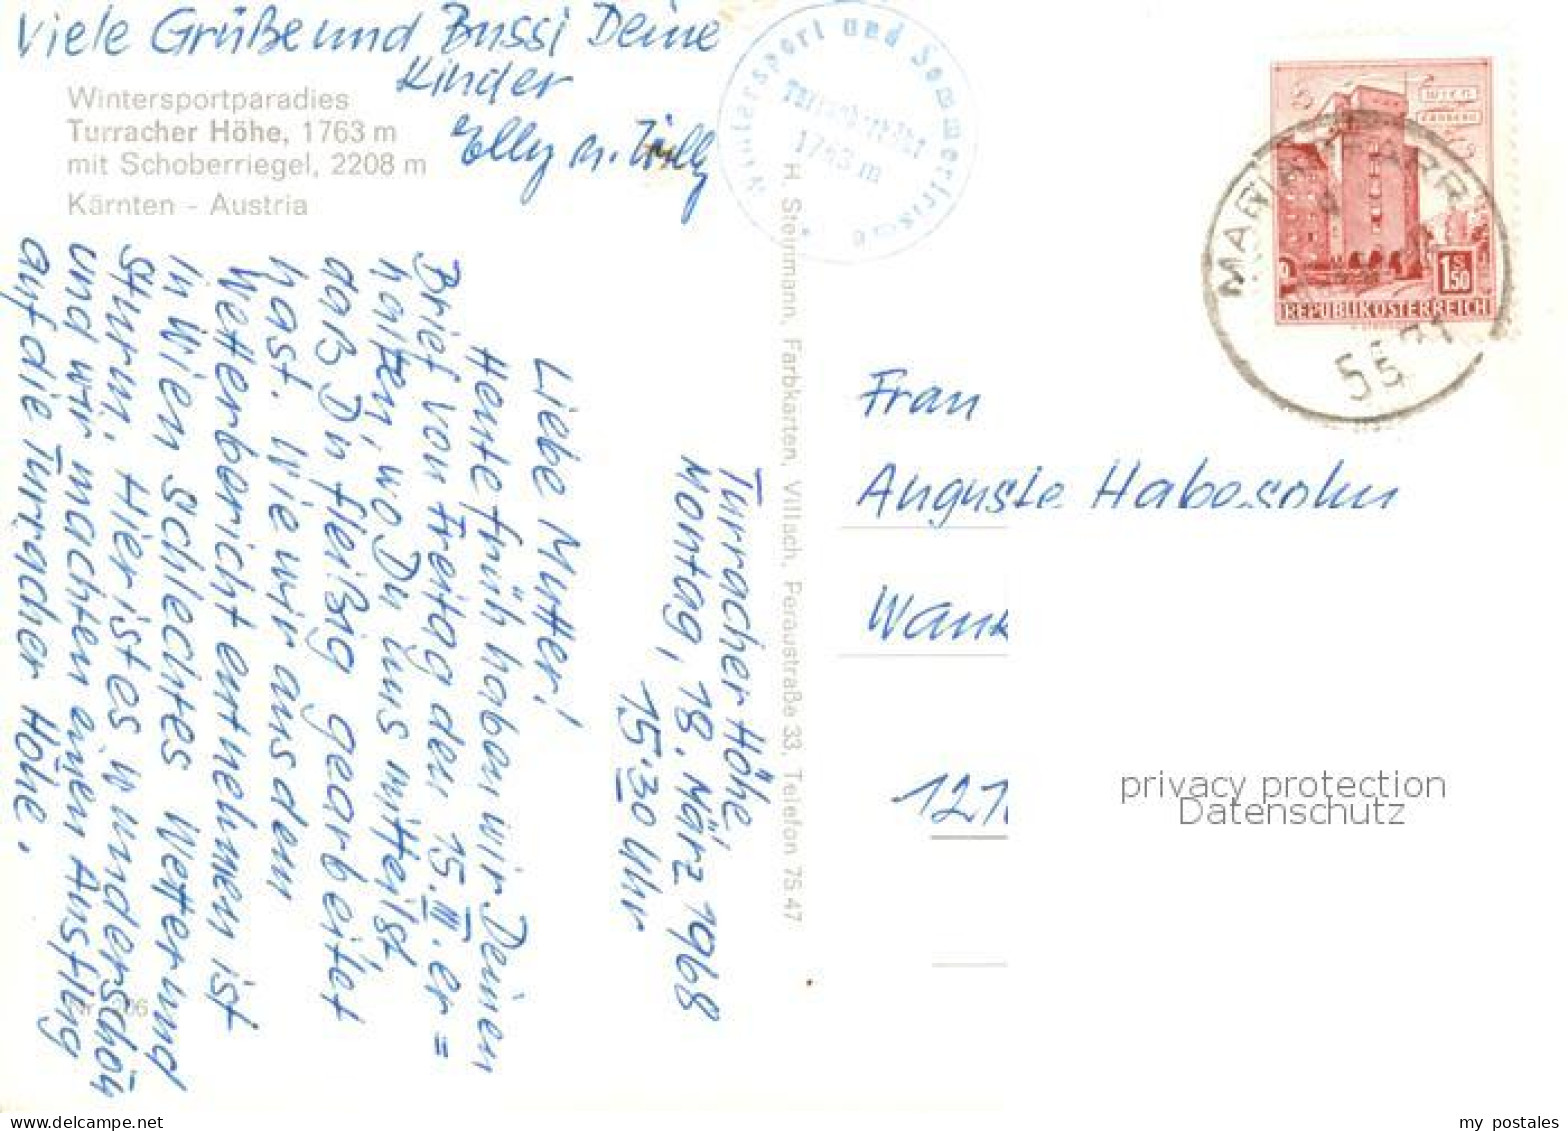 Viele Grüße und Bussi Deine
Kinder
Elly u. Willy
Wintersportparadies
Turracher Höhe, 1763 m
mit Schoberriegel, 2208 m
Kärnten - Austria
Turracher Höhe,
Montag, 18. März 1968
15.30 Uhr
Liebe Mutter!
Heute früh haben wir Deinen
Brief von Freitag den 15.III. er=
halten, wo Du uns mitteilst,
daß Du fleißig gearbeitet
hast. Wie wir aus dem
Wetterbericht entnehmen ist
in Wien schlechtes Wetter und
Sturm. Hier ist es wunderschön
und wir machten einen Ausflug
auf die Turracher Höhe.
H. Steinmann, Farbkarten, Villach, Peraustraße 33, Telefon 75 47
Wintersport und Sommerfrische
Turracherhöhe
1763 m
WIEN
ERDBERG
1 S 50
REPUBLIK ÖSTERREICH
Frau
Auguste
Wank
121
privacy protection
Datenschutz
my postales